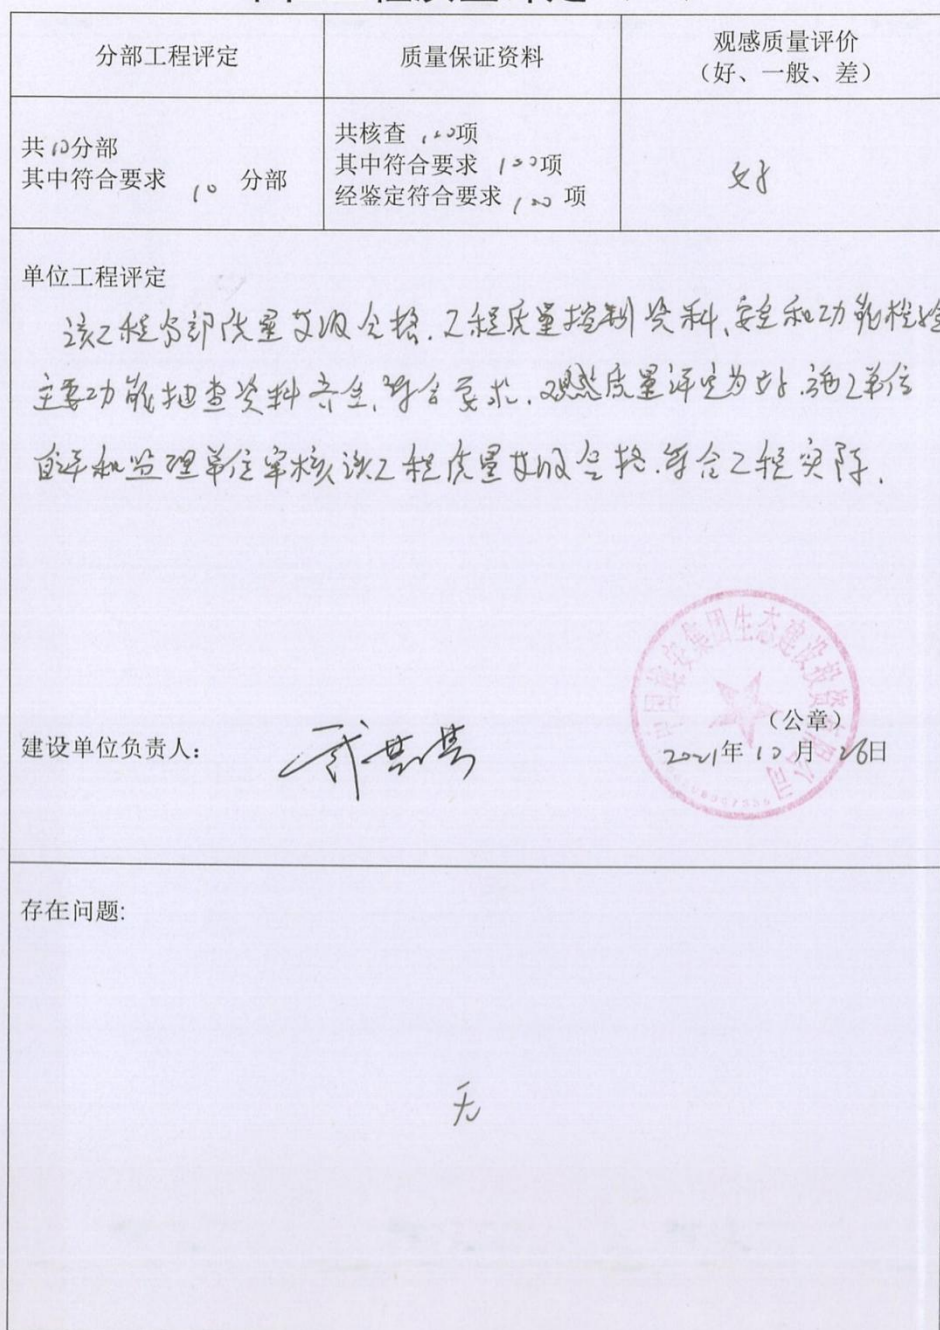 分部工程评定
质量保证资料
观感质量评价
(好、一般、差)
共10分部
其中符合要求 10 分部
共核查 100项
其中符合要求 100项
经鉴定符合要求 100 项
好
单位工程评定
该工程分部质量验收合格.工程质量控制资料、安全和功能检验
主要功能抽查资料齐全,符合要求.观感质量评定为好.施工单位
自评和监理单位审核该工程质量验收合格.符合工程实际.
集团生态建设投资有限公司
建设单位负责人:
(公章)
2021年 10 月 26日
存在问题:
无